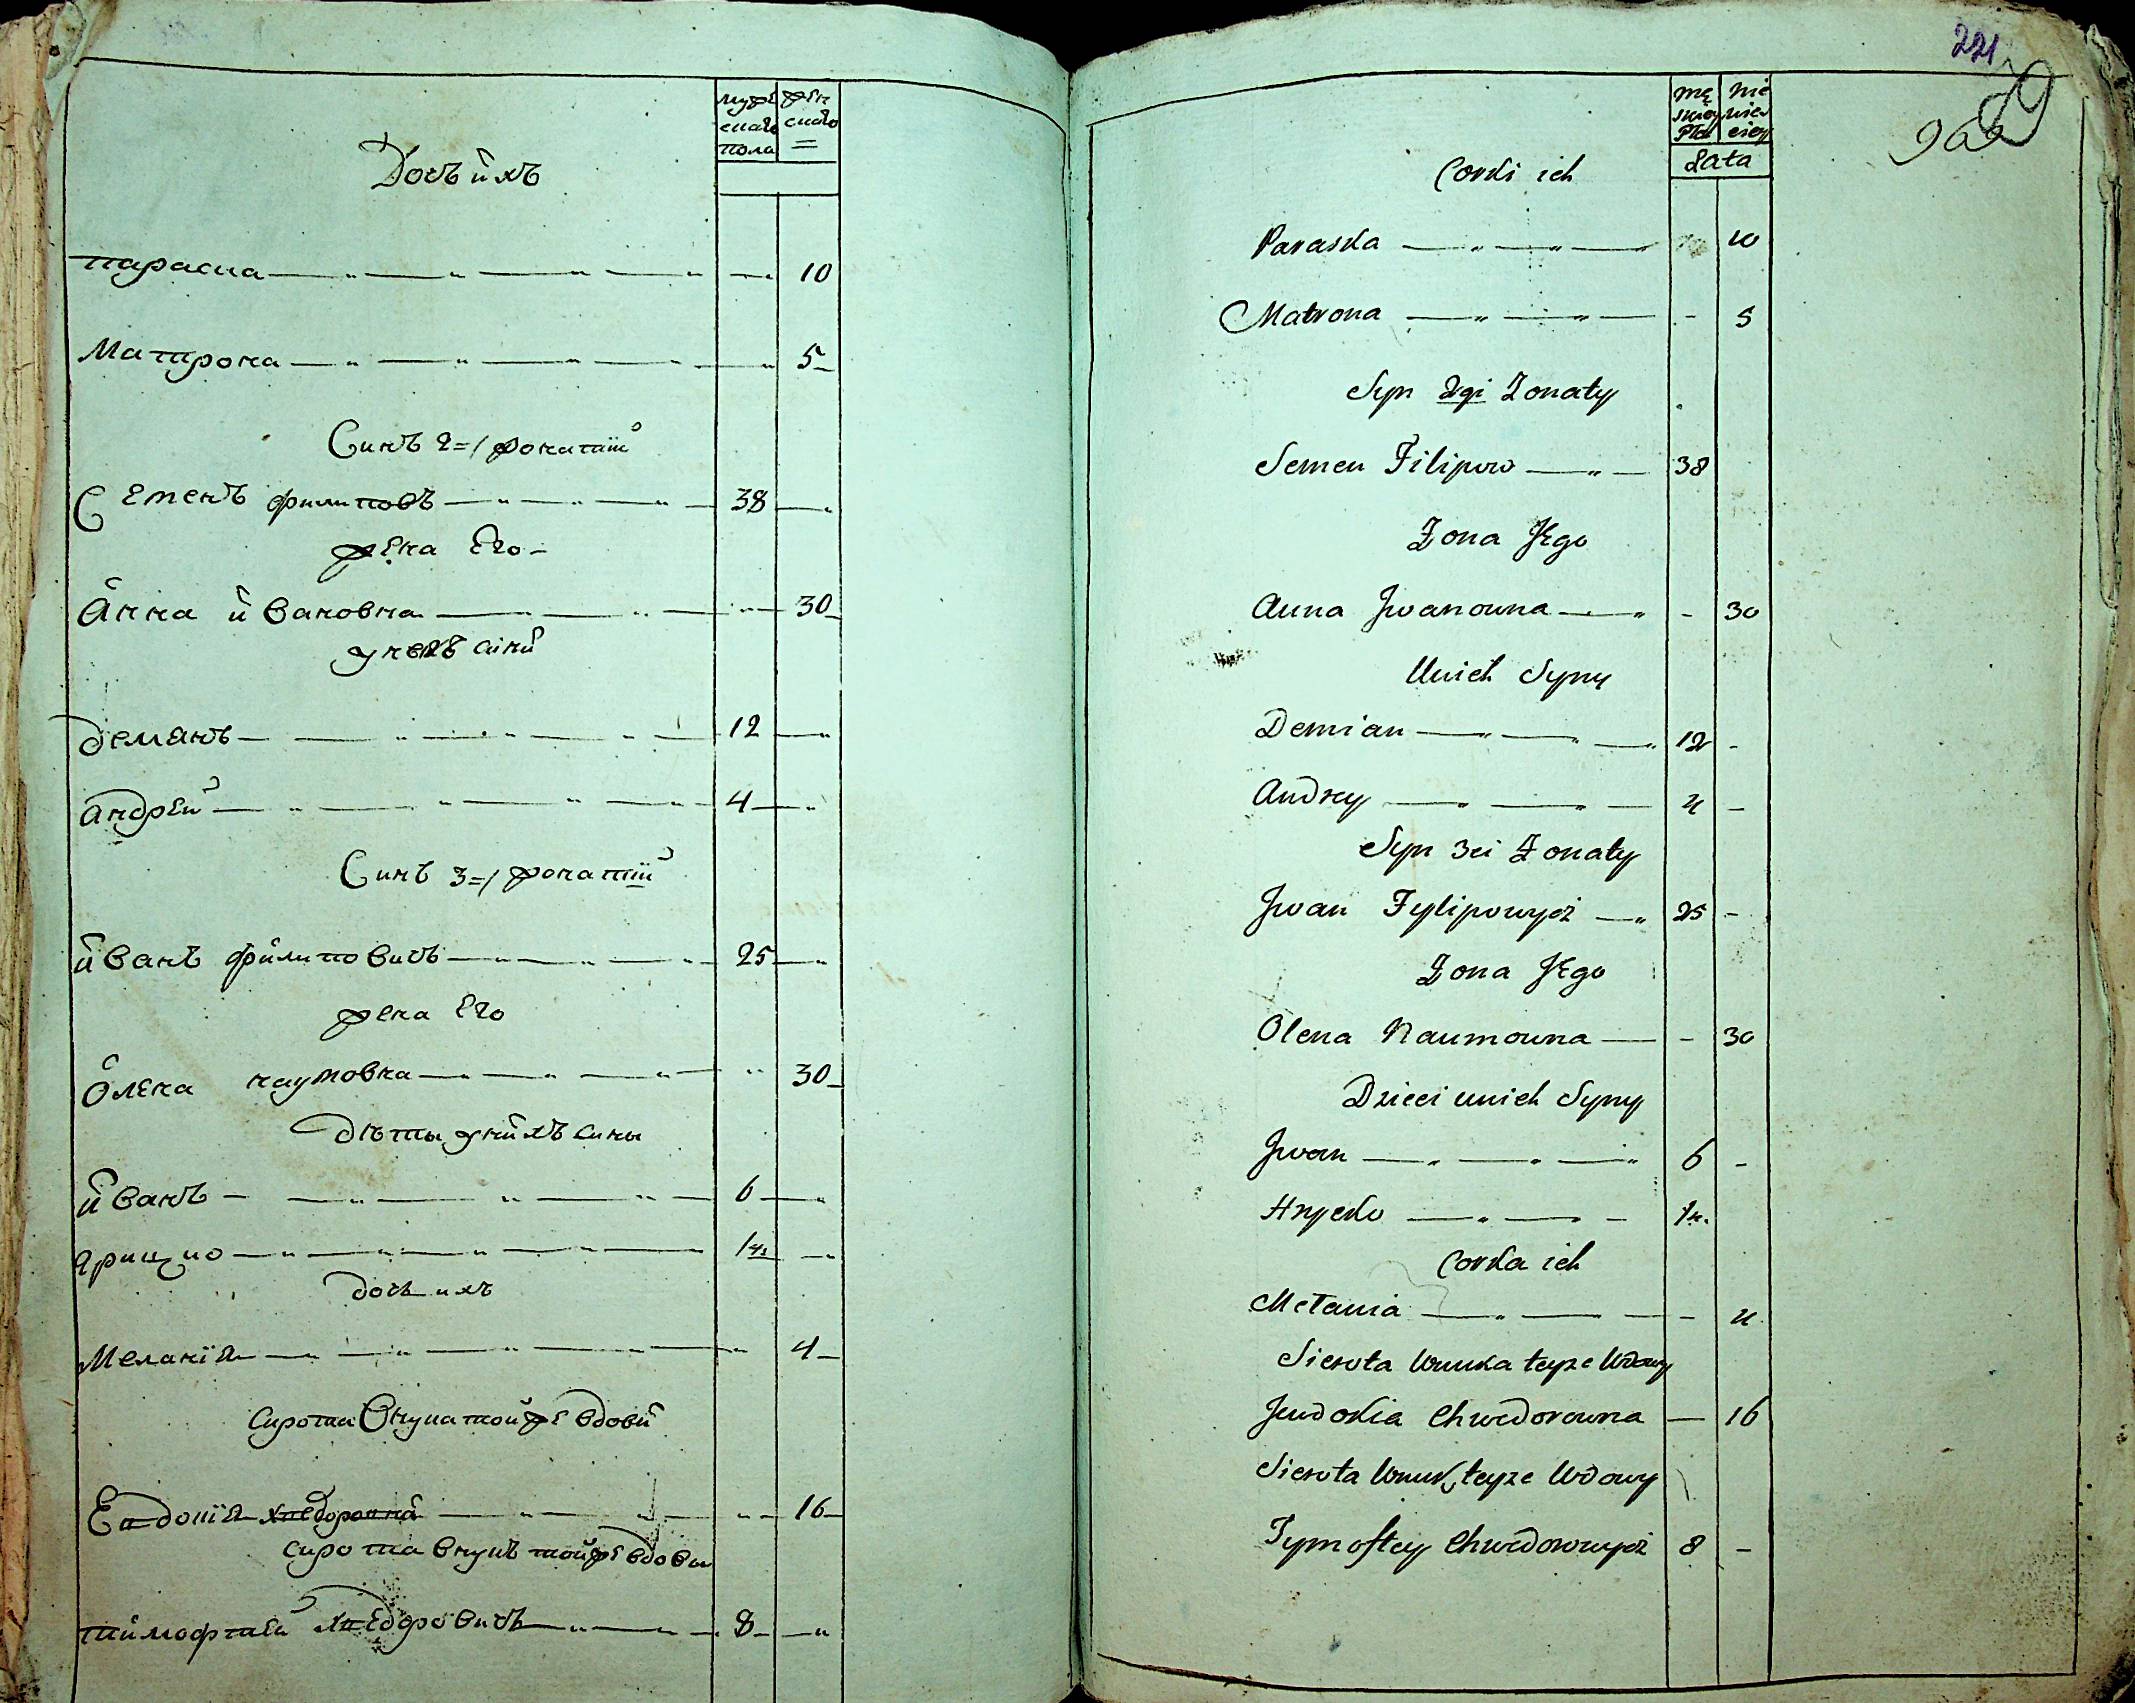 муже
скаго
пола
жен
скаго
=
Дочъ ихъ
параска 10
Матрона 5
Синъ 2=/ жонатий
Семенъ филиповъ 38
жена Его
Анна ивановна 30
унихъ сини
демянъ 12
андрей 4
Синъ 3=/ жонатий
иванъ филиповичъ 25
жена Его
олена наумовна 30
дѣты унихъ сины
иванъ 6
грицко 1 н.
дочь ихъ
меланія 4
сирота внука той же вдови
Евдокія хведоровна 16
сирота внукъ той же вдови
тимофтей хведоровичъ 8
221
9
Mę
skiey
Płci
Nie
wies
ciey
Lata
Corki ich
Paraska 10
Matrona 5
Syn 2gi Zonaty
Semen Filipow 38
Zona Jego
Anna Jwanowna 30
Unich Syny
Demian 12
Andrey 4
Syn 3ci Zonaty
Jwan Fylipowycz 25
Zona Jego
Olena Naumowna 30
Dzieci unich Syny
Jwan 6
Hrycko 1 n.
Corka ich
Mełania 4
Sierota Wnuka teyze Wdowy
Jewdokia Chwedorowna 16
Sierota Wnuk, teyze Wdowy
Tymoftey Chwedorowycz 8